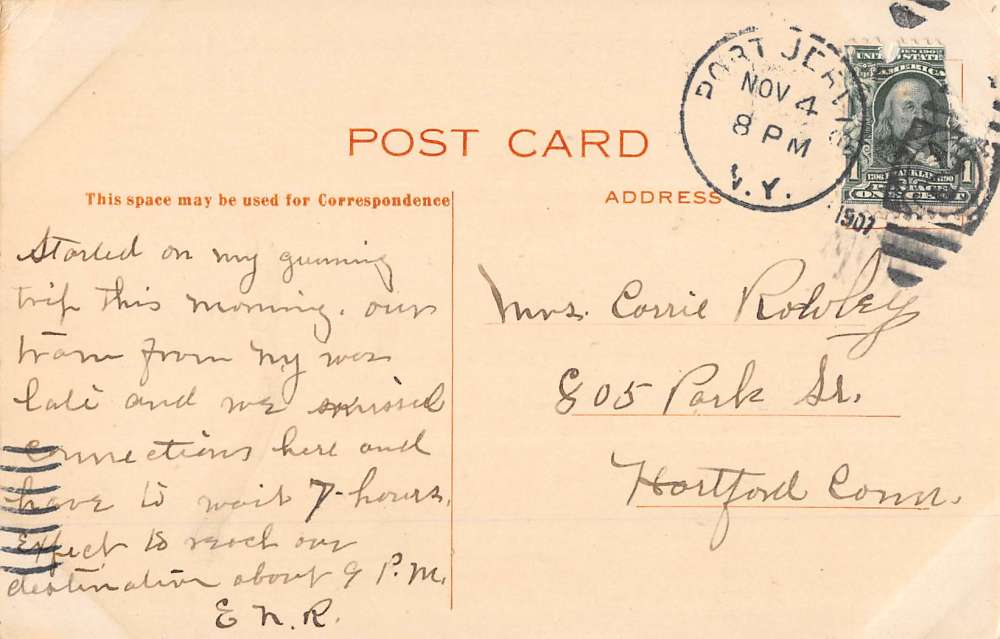 POST CARD
PORT JERVIS
NOV 4
8 PM
N.Y.
1907
UNITED STATES
AMERICA
1706 FRANKLIN 1790
POSTAGE
1 ONE CENT 1
This space may be used for Correspondence
ADDRESS
Started on my gunning
trip this morning. our
train from NY was
late and we missed
connections here and
have to wait 7-hours.
Expect to reach our
destination about 9 P.M.
E N. R.
Mrs. Corrie Rowley
805 Park St.
Hartford Conn.